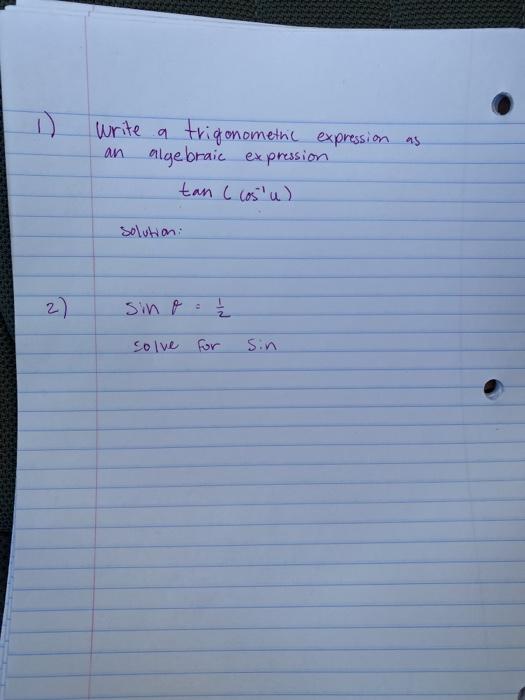 1) Write a trigonometric expression as
an algebraic expression
tan (cos⁻¹u)
solution:
2) sin θ = 1/2
solve for sin